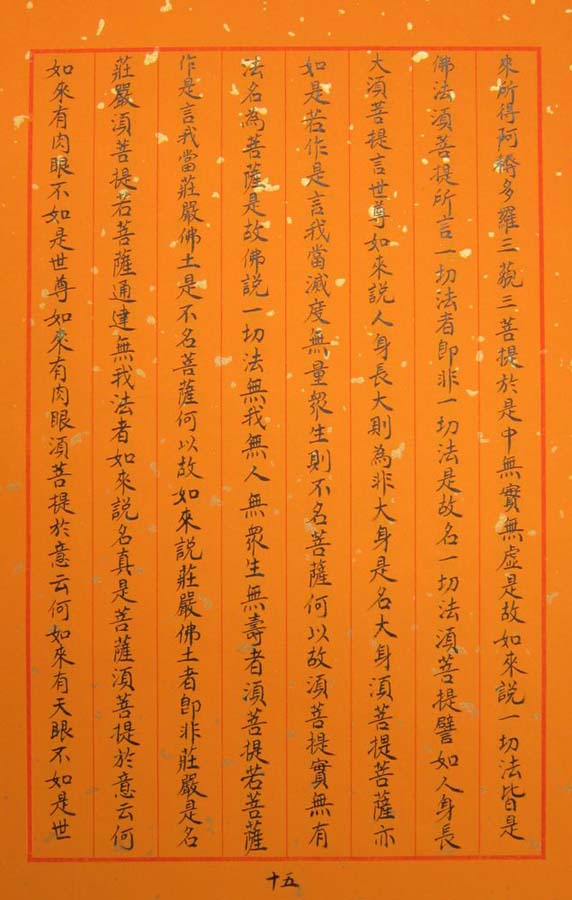 來所得阿耨多羅三藐三菩提於是中無實無虛是故如來說一切法皆是
佛法須菩提所言一切法者即非一切法是故名一切法須菩提譬如人身長
大須菩提言世尊如來說人身長大則為非大身是名大身須菩提菩薩亦
如是若作是言我當滅度無量眾生則不名菩薩何以故須菩提實無有
法名為菩薩是故佛說一切法無我無人無眾生無壽者須菩提若菩薩
作是言我當莊嚴佛土是不名菩薩何以故如來說莊嚴佛土者即非莊嚴是名
莊嚴須菩提若菩薩通達無我法者如來說名真是菩薩須菩提於意云何
如來有肉眼不如是世尊如來有肉眼須菩提於意云何如來有天眼不如是世
十五